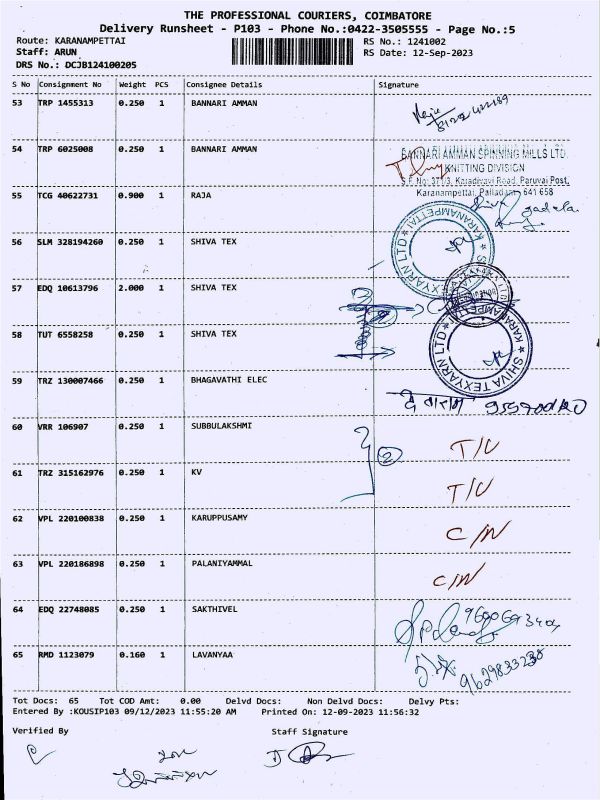 THE PROFESSIONAL COURIERS, COIMBATORE
Delivery Runsheet - P103 - Phone No.:0422-3505555 - Page No.:5
Route: KARANAMPETTAI RS No.: 1241002
Staff: ARUN RS Date: 12-Sep-2023
DRS No.: DCJB124100205
S No Consignment No Weight PCS Consignee Details Signature
53 TRP 1455313 0.250 1 BANNARI AMMAN
54 TRP 6025008 0.250 1 BANNARI AMMAN
BANNARI AMMAN SPINNING MILLS LTD.
KNITTING DIVISION
S.F. No: 371/3, Karadivavi Road, Paruvai Post,
Karanampettai, Palladam - 641 658
55 TCG 40622731 0.900 1 RAJA
56 SLM 328194260 0.250 1 SHIVA TEX
57 EDQ 10613796 2.000 1 SHIVA TEX
58 TUT 6558258 0.250 1 SHIVA TEX
SHIVA TEXYARN LTD ★ KARANAMPETTAI ★
59 TRZ 130007466 0.250 1 BHAGAVATHI ELEC
60 VRR 106907 0.250 1 SUBBULAKSHMI T/U
2
61 TRZ 315162976 0.250 1 KV T/U
62 VPL 220100838 0.250 1 KARUPPUSAMY C/N
63 VPL 220186898 0.250 1 PALANIYAMMAL C/N
64 EDQ 22748085 0.250 1 SAKTHIVEL
65 RMD 1123079 0.160 1 LAVANYAA 9629833238
Tot Docs: 65 Tot COD Amt: 0.00 Delvd Docs: Non Delvd Docs: Delvy Pts:
Entered By :KOUSIP103 09/12/2023 11:55:20 AM Printed On: 12-09-2023 11:56:32
Verified By Staff Signature